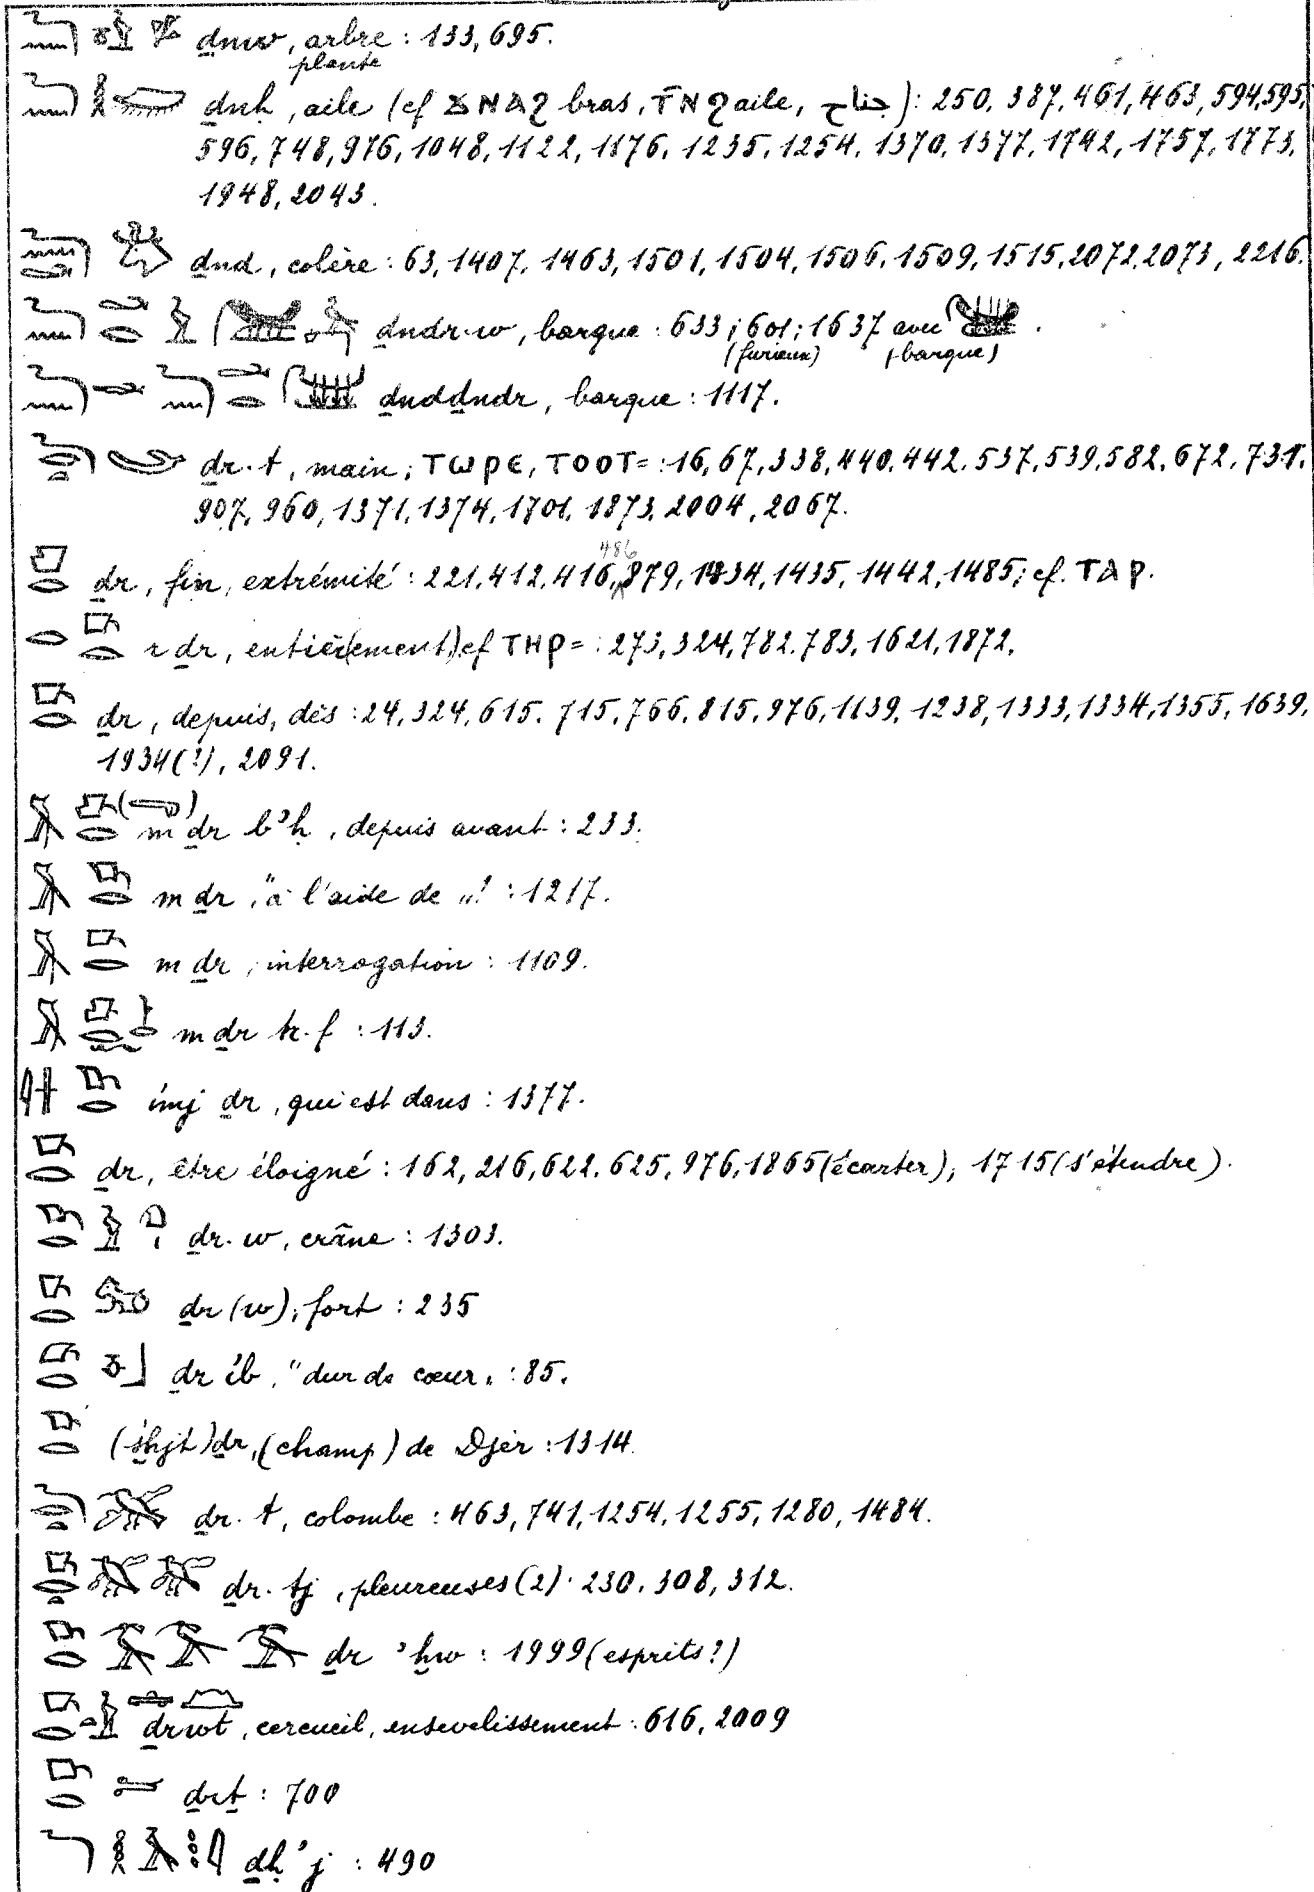 ḏnw, arbre : 133, 695.
plante
ḏnḥ, aile (cf ϪNAϨ bras, T̄NϨ aile, جناح) : 250, 387, 461, 463, 594, 595,
596, 748, 976, 1048, 1122, 1176, 1235, 1254, 1370, 1377, 1742, 1757, 1773,
1948, 2043.
ḏnd, colère : 63, 1407, 1463, 1501, 1504, 1506, 1509, 1515, 2072, 2073, 2216.
ḏndr·w, barque : 633 ; 601 ; 1637 avec .
(furieux) (barque)
ḏndḏndr, barque : 1117.
ḏr·t, main ; ⲦⲰⲢⲈ, ⲦⲞⲞⲦ= : 16, 67, 338, 440, 442, 537, 539, 582, 672, 731,
907, 960, 1371, 1374, 1701, 1873, 2004, 2067.
486
ḏr, fin, extrémité : 221, 412, 416, 879, 1434, 1435, 1442, 1485 ; cf. ⲦⲀⲢ.
r ḏr, entièr(ement) cf ⲦⲎⲢ= : 273, 324, 782, 783, 1621, 1872.
ḏr, depuis, dès : 24, 324, 615, 715, 766, 815, 976, 1139, 1238, 1333, 1334, 1355, 1639,
1934(?), 2091.
m ḏr bꜣḥ, depuis avant : 233.
m ḏr, "à l'aide de„? : 1217.
m ḏr, interrogation : 1109.
m ḏr ḥr·f : 113.
imj ḏr, qui est dans : 1377.
ḏr, être éloigné : 162, 216, 622, 625, 976, 1865 (écarter), 1715 (s'étendre).
ḏr·w, crâne : 1303.
ḏr(w), fort : 235
ḏr ib, "dur de cœur„ : 85.
(śḫjt) ḏr, (champ) de Djer : 1314.
ḏr·t, colombe : 463, 741, 1254, 1255, 1280, 1484.
ḏr·tj, pleureuses (2) : 230, 308, 312.
ḏr ꜣḫw : 1999 (esprits?)
ḏrwt, cercueil, ensevelissement : 616, 2009
ḏrṯ : 700
ḏḥꜣj : 490